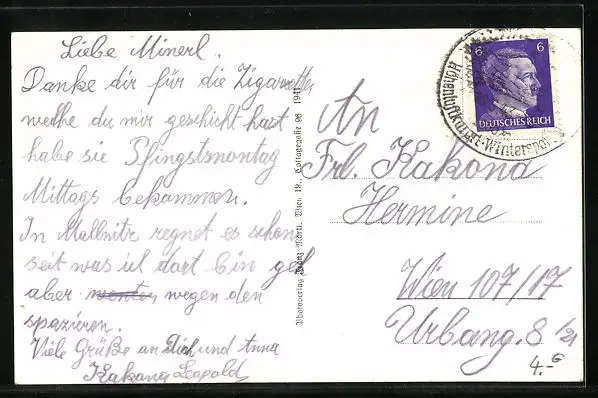 Liebe Minerl.
Danke dir für die Zigaretten
welche du mir geschickt hast
habe sie Pfingstsmontag
Mittags bekammen.
In Mallnitz regnet es schon
seit was ich dort bin geh
aber wegen den
spazieren.
Viele Grüße an Dich und Anna
Kakona Leopold
Photoverlag Franz Mörtl, Wien 19., Cottagegasse 96 1941
6 6
DEUTSCHES REICH
Höhenluftkurort-Wintersport
An
Frl. Kakona
Hermine
Wien 107/17
Urbang. 8/21
4.-G